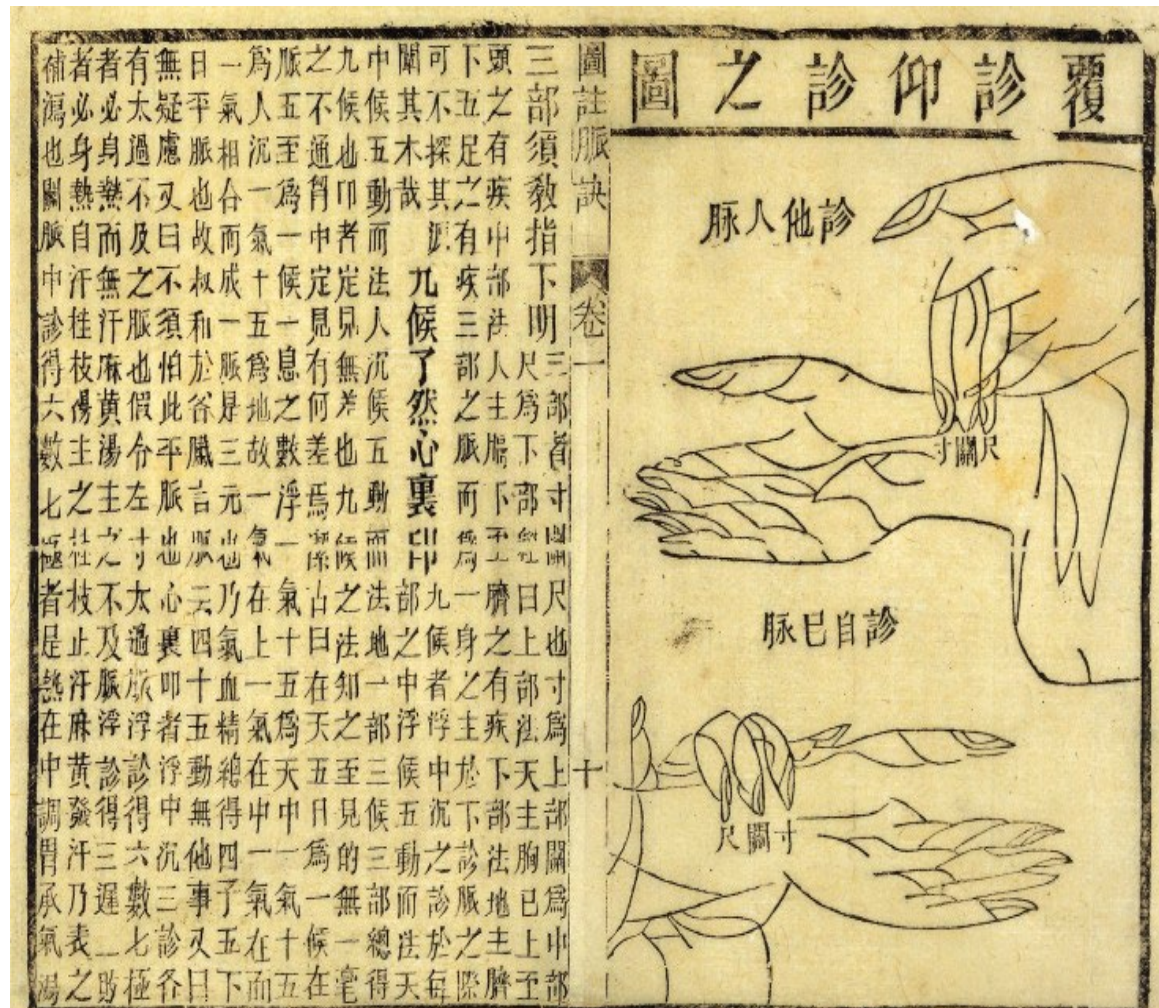 覆診仰診之圖
診他人脉
尺關寸
診自已脉
寸關尺
圖註脉訣 卷一 十
三部須教指下明
三部者寸關尺也寸爲上部關爲中部
尺爲下部經曰上部法天主胸已上至
頭之有疾中部法人主膈下至臍之有疾下部法地主臍
下五足之有疾三部之脈而爲一身之主於下診脈之際
可不探其源
闕其木哉
九候了然心裏印
九候者浮中沉之診於每
部之中浮候五動而法天
中候五動而法人沉候五動而法地一部三候三部總得
九候也印者定見無差也九候之法知之至見的無一毫
之不通胷中定見有何差焉潔古曰在天五日爲一候在
脈五至爲一候一息之數浮一氣十五爲天中一氣十五
爲人沉一氣十五爲地故一氣在上一氣在中一氣在而
一氣相合而成一脈是三元也乃氣血精總得四子五下
日平脈也故叔和於谷臟言脈云四十五動無他事又曰
無疑慮又曰不須怕此平脈也心裏叩者浮中沉三診各
有太過不及之脈也假令左寸太過脈浮診得六數七極
者必身熱而無汗麻黃湯主之不及脈浮診得三遲二敗
者必身熱自汗桂枝湯主之桂枝止汗麻黃發汗乃表之
補瀉也關脈中診得六數七極者是熱在中調胃承氣湯